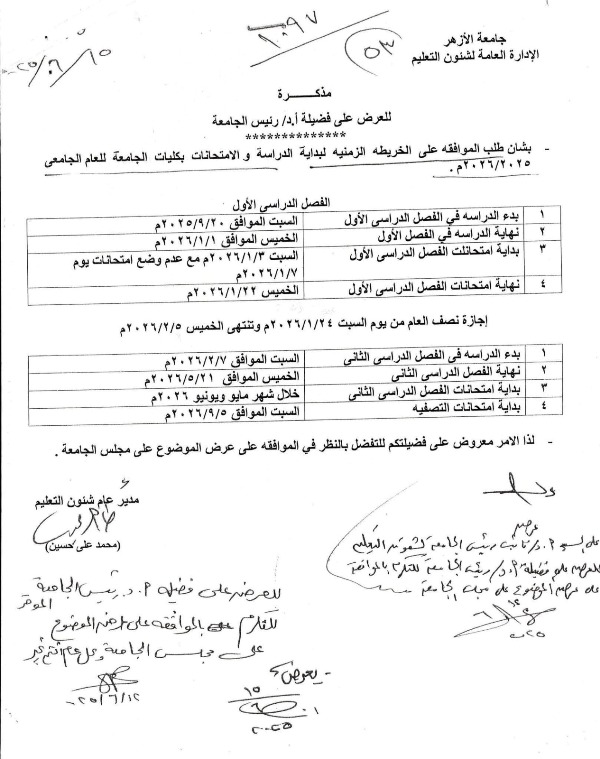 ١٠٩٧
٥٣
٢٠٢٥/٦/١٥
جامعة الأزهر
الإدارة العامة لشئون التعليم
مذكـــــرة
للعرض على فضيلة أ.د/ رئيس الجامعة
**************
- بشان طلب الموافقه على الخريطه الزمنيه لبداية الدراسة و الامتحانات بكليات الجامعة للعام الجامعى
٢٠٢٦/٢٠٢٥م .
الفصل الدراسى الأول
١ بدء الدراسه في الفصل الدراسى الأول السبت الموافق ٢٠٢٥/٩/٢٠م
٢ نهاية الدراسه في الفصل الدراسى الأول الخميس الموافق ٢٠٢٦/١/١م
٣ بداية امتحانلت الفصل الدراسى الأول السبت ٢٠٢٦/١/٣م مع عدم وضع امتحانات يوم
٢٠٢٦/١/٧م
٤ نهاية امتحانات الفصل الدراسى الأول الخميس ٢٠٢٦/١/٢٢م
إجازة نصف العام من يوم السبت ٢٠٢٦/١/٢٤م وتنتهى الخميس ٢٠٢٦/٢/٥م
١ بدء الدراسه في الفصل الدراسى الثانى السبت الموافق ٢٠٢٦/٢/٧م
٢ نهاية الفصل الدراسى الثانى الخميس الموافق ٢٠٢٦/٥/٢١م
٣ بداية امتحانات الفصل الدراسى الثانى خلال شهر مايو ويونيو ٢٠٢٦م
٤ بداية امتحانات التصفيه السبت الموافق ٢٠٢٦/٩/٥م
- لذا الامر معروض على فضيلتكم للتفضل بالنظر في الموافقه على عرض الموضوع على مجلس الجامعة .
مدير عام شئون التعليم
(محمد على حسين)
للعرض على فضيلة أ.د رئيس الجامعة
الموقر
للتكرم بالموافقة على عرض الموضوع
على مجلس الجامعة
٢٠٢٥/٦/١٢
عرض
على السيد أ.د/ نائب رئيس الجامعة لشئون التعليم
للعرض على فضيلة أ.د/ رئيس الجامعة للتكرم بالموافقة
على عرض الموضوع على مجلس الجامعة
١٢
٦
٢٠٢٥
- يعرض
١٥
٦
٢٠٢٥